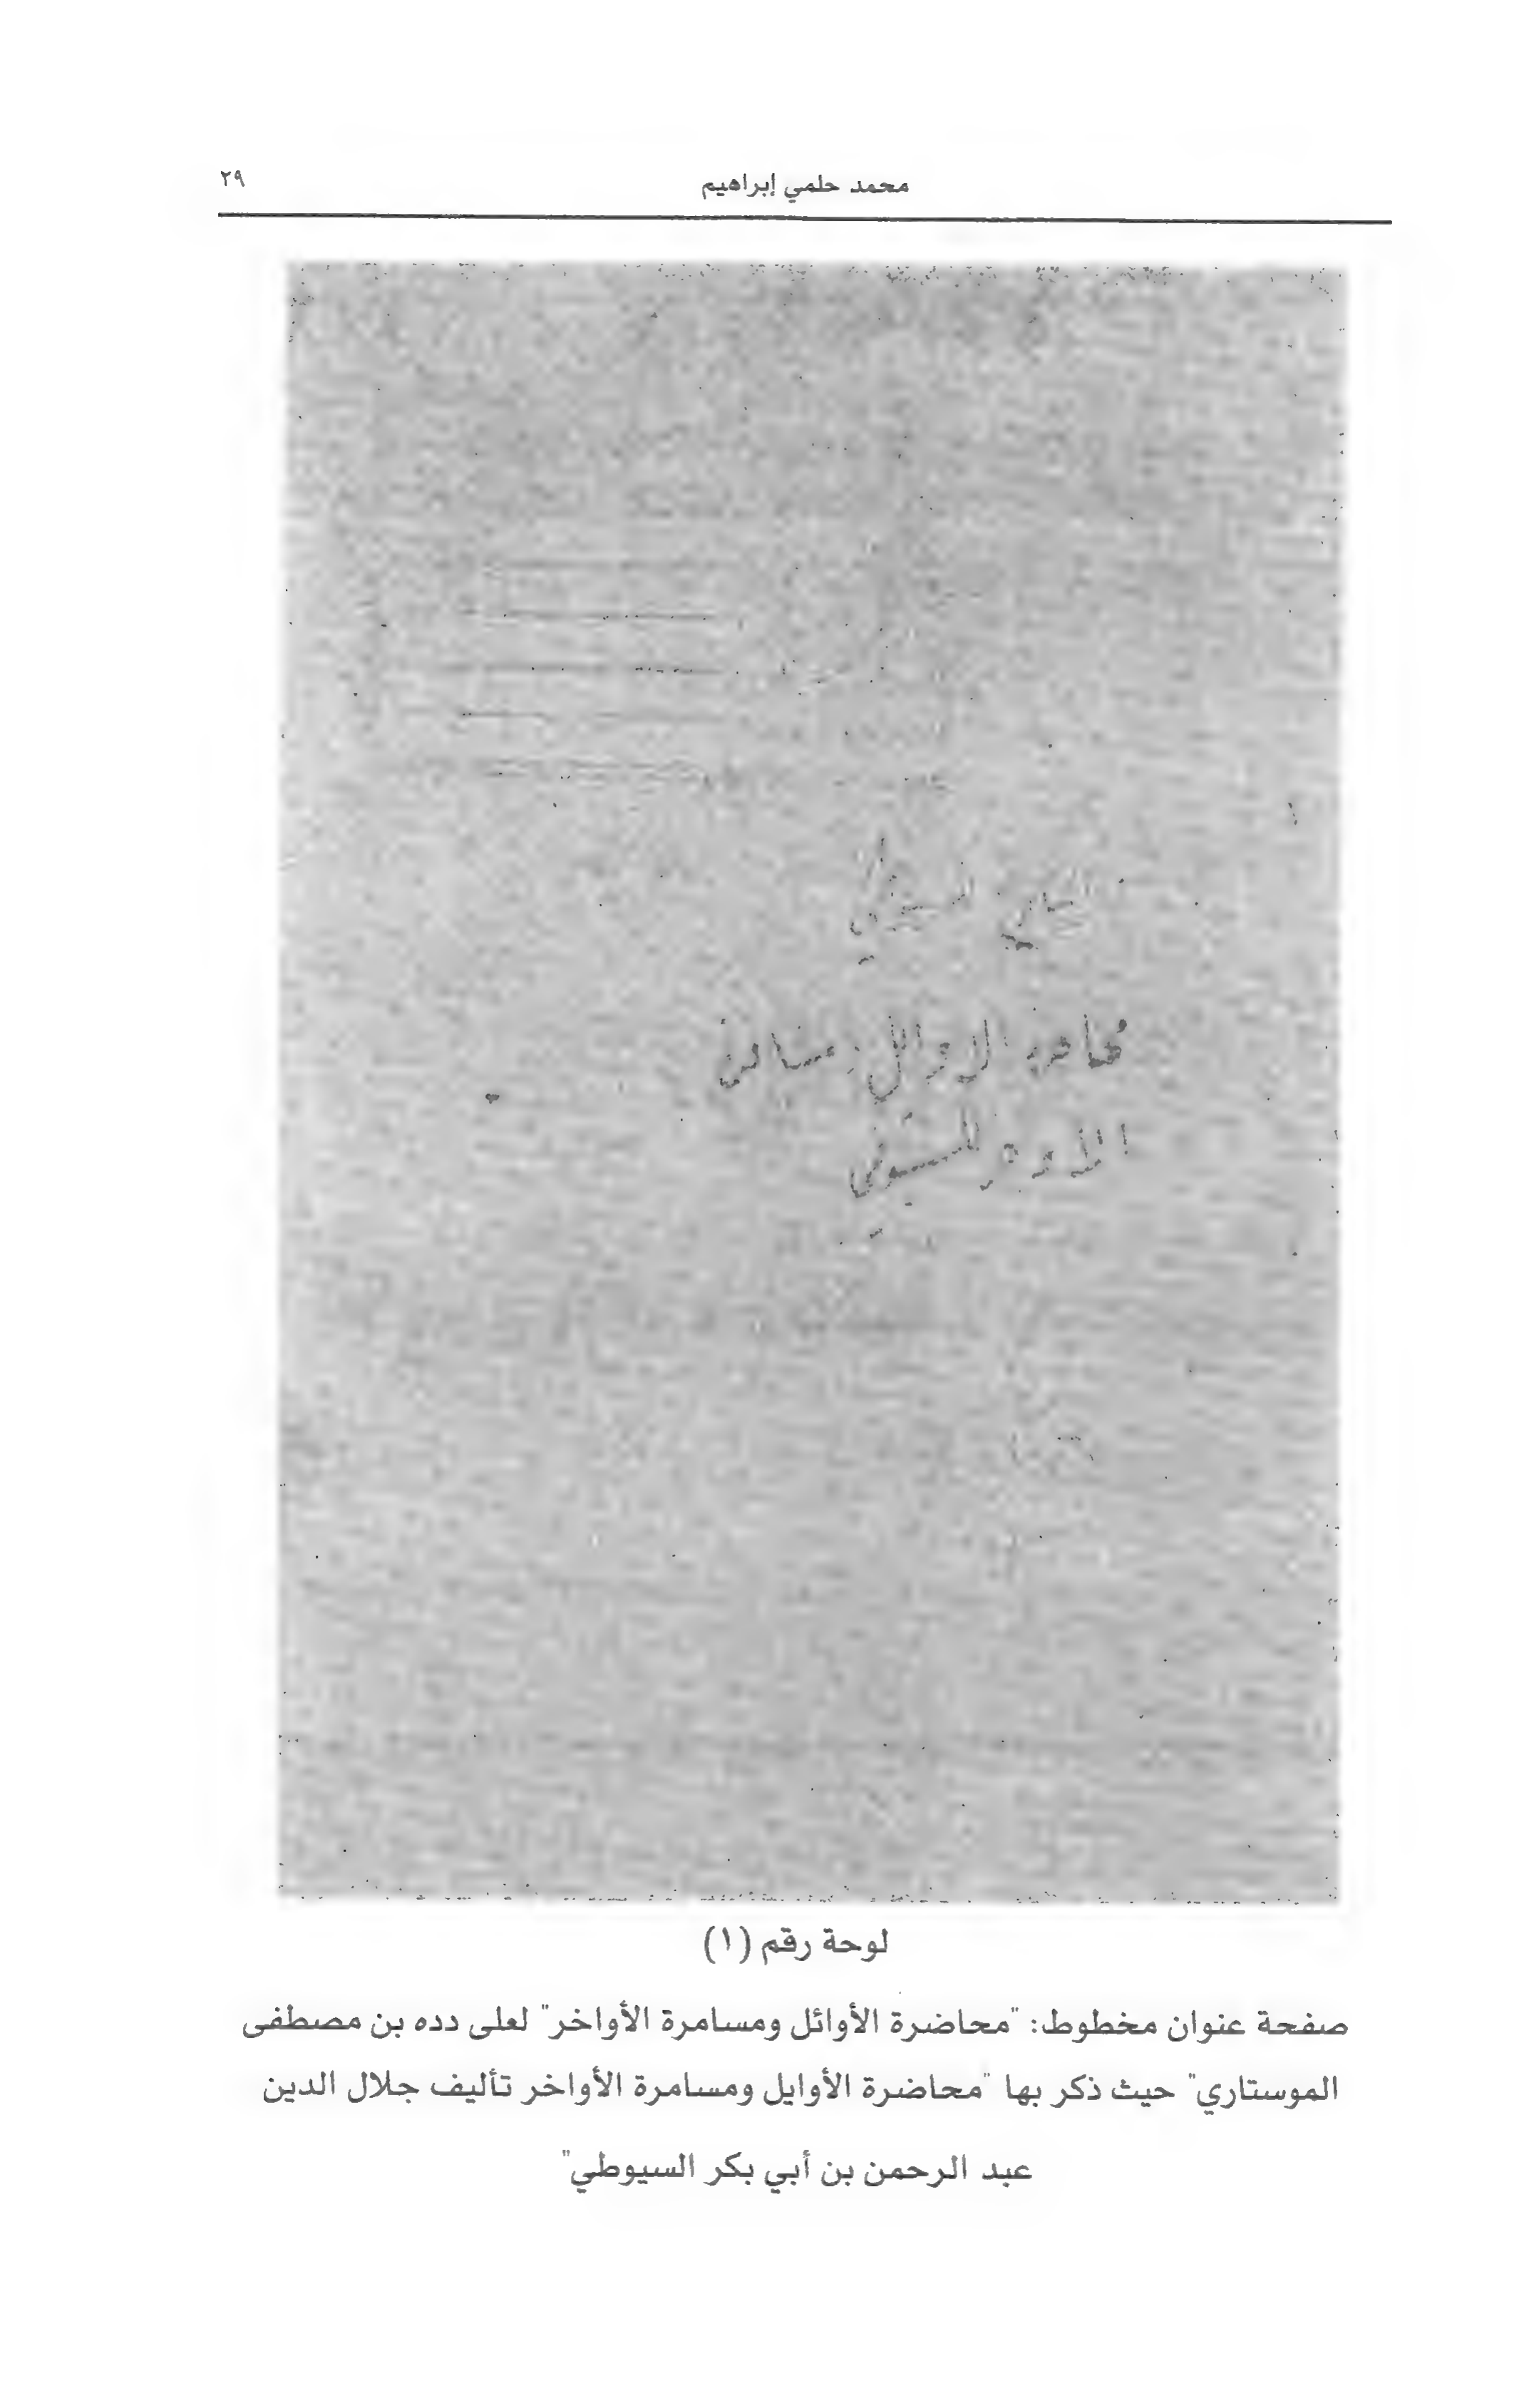 محمد حلمي إبراهيم
٢٩
محاضرة الاوائل
للسيوطي
لوحة رقم (١)
صفحة عنوان مخطوط: "محاضرة الأوائل ومسامرة الأواخر" لعلى دده بن مصطفى
الموستاري" حيث ذكر بها "محاضرة الأوايل ومسامرة الأواخر تأليف جلال الدين
عبد الرحمن بن أبي بكر السيوطي"